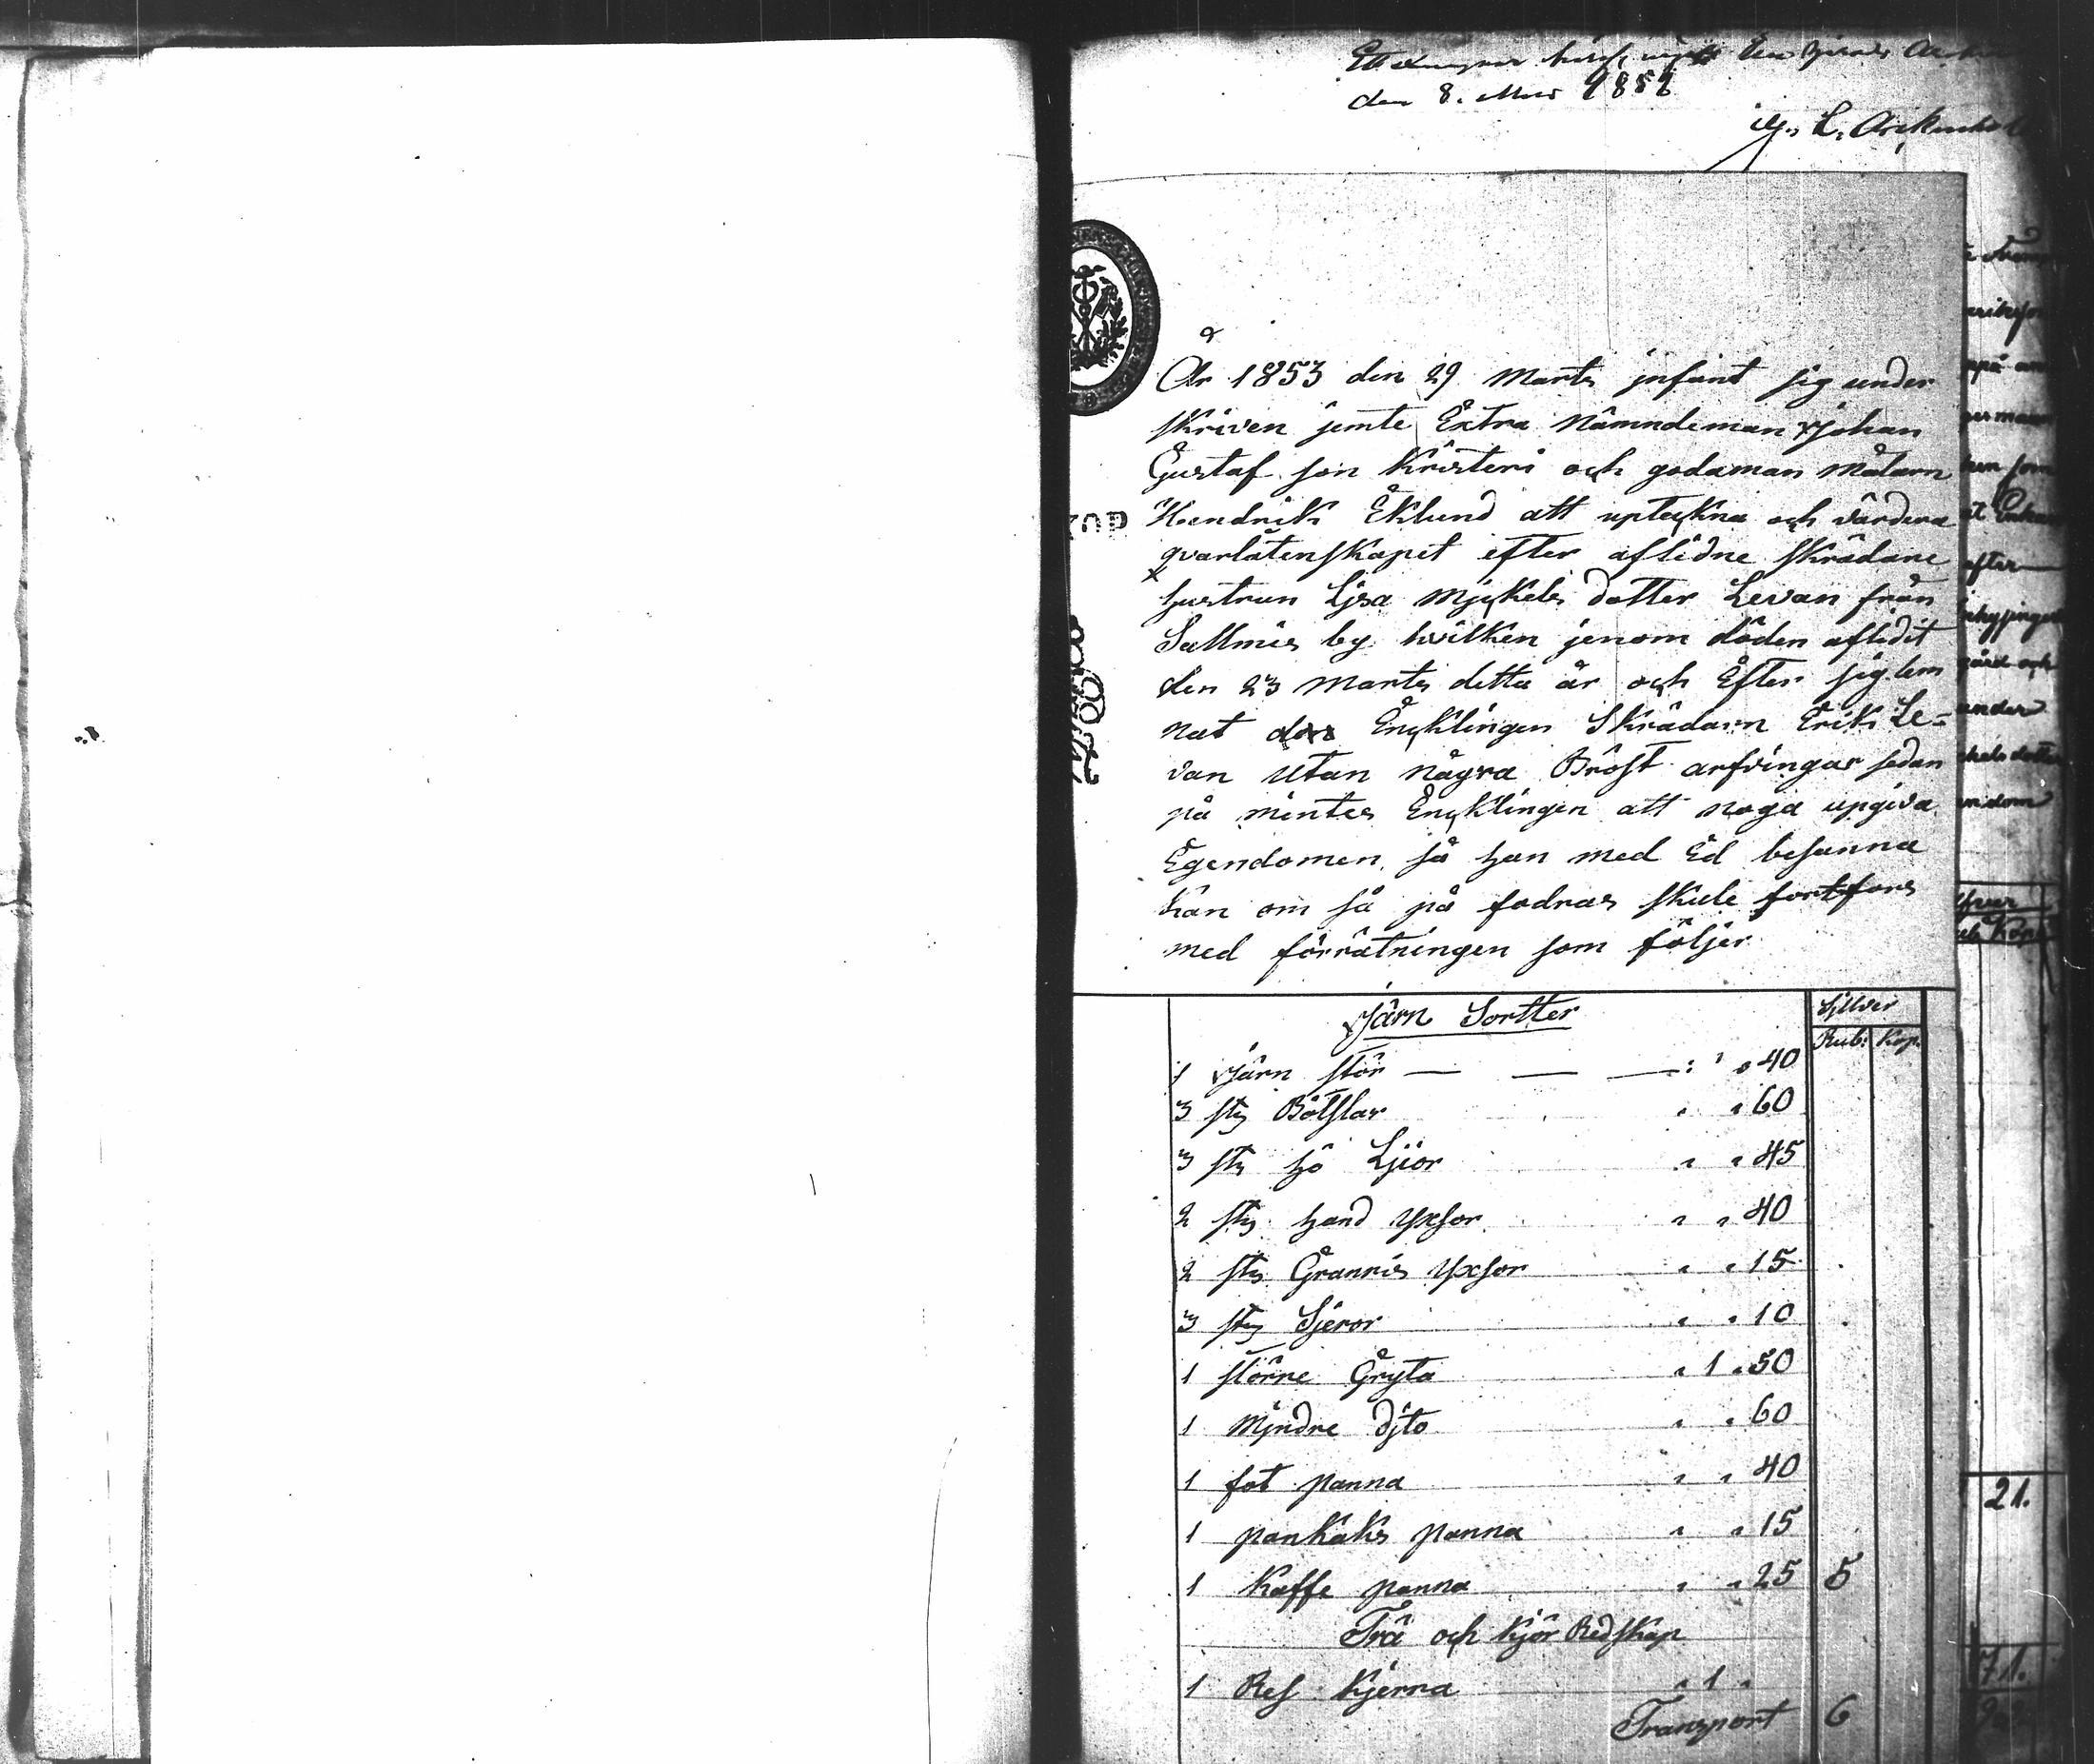 den 8. 1852
L.
År 1853 den 29 Marts infant sig under
skriven jemte Extra Nämndeman Johan
Gustaf son Kristeri och godaman målarn
KOP
Hendrik Eklund att upteckna och värdera
qvarlåtenskapet efter aflidne skrädare
hustrun Lisa Mickels dotter Levan från
Sallmis by hvilken jenom döden aflidit
den 23 Marts detta år och Efter sig lem
nat den Encklingen Skrädarn Erik Le-
van utan några Bröst arfvingar sedan
på mintes Encklingen att noga upgiva
Egendomen, så han med Ed besanna
kan om så på fodras skule fortfors
med förrätningen som följer
Järn Sortter
Silver
Rub: Kop.
1 Järn stör — — — : " " 40
3 sty Bötslar " " 60
3 sty hö Liior " " 45
2 sty hand yxsor " " 40
2 sty Grannis yxsor " " 15
3 sty Sjeror " " 10
1 större Gryta " 1 " 50
1 Mindre Dito " " 60
1 fot panna " " 40
1 pankaks panna " " 15
1 Kaffe panna " " 25 5
Trä och Kjör Redskap
1 Res Kjerna " 1 "
Transport 6
efter
under
21.
71.